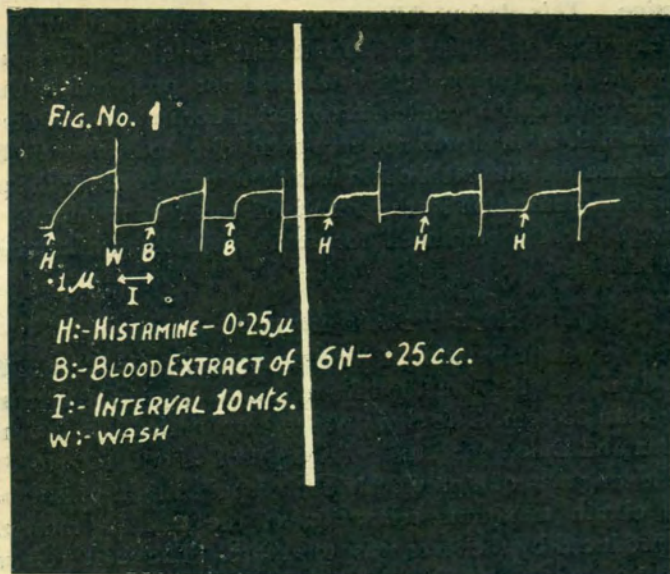 FIG. No. 1
H W B B H H H
.1µ
I
H:- HISTAMINE - 0.25µ
B:- BLOOD EXTRACT of 6H - .25 C.C.
I:- INTERVAL 10 MTS.
W:- WASH